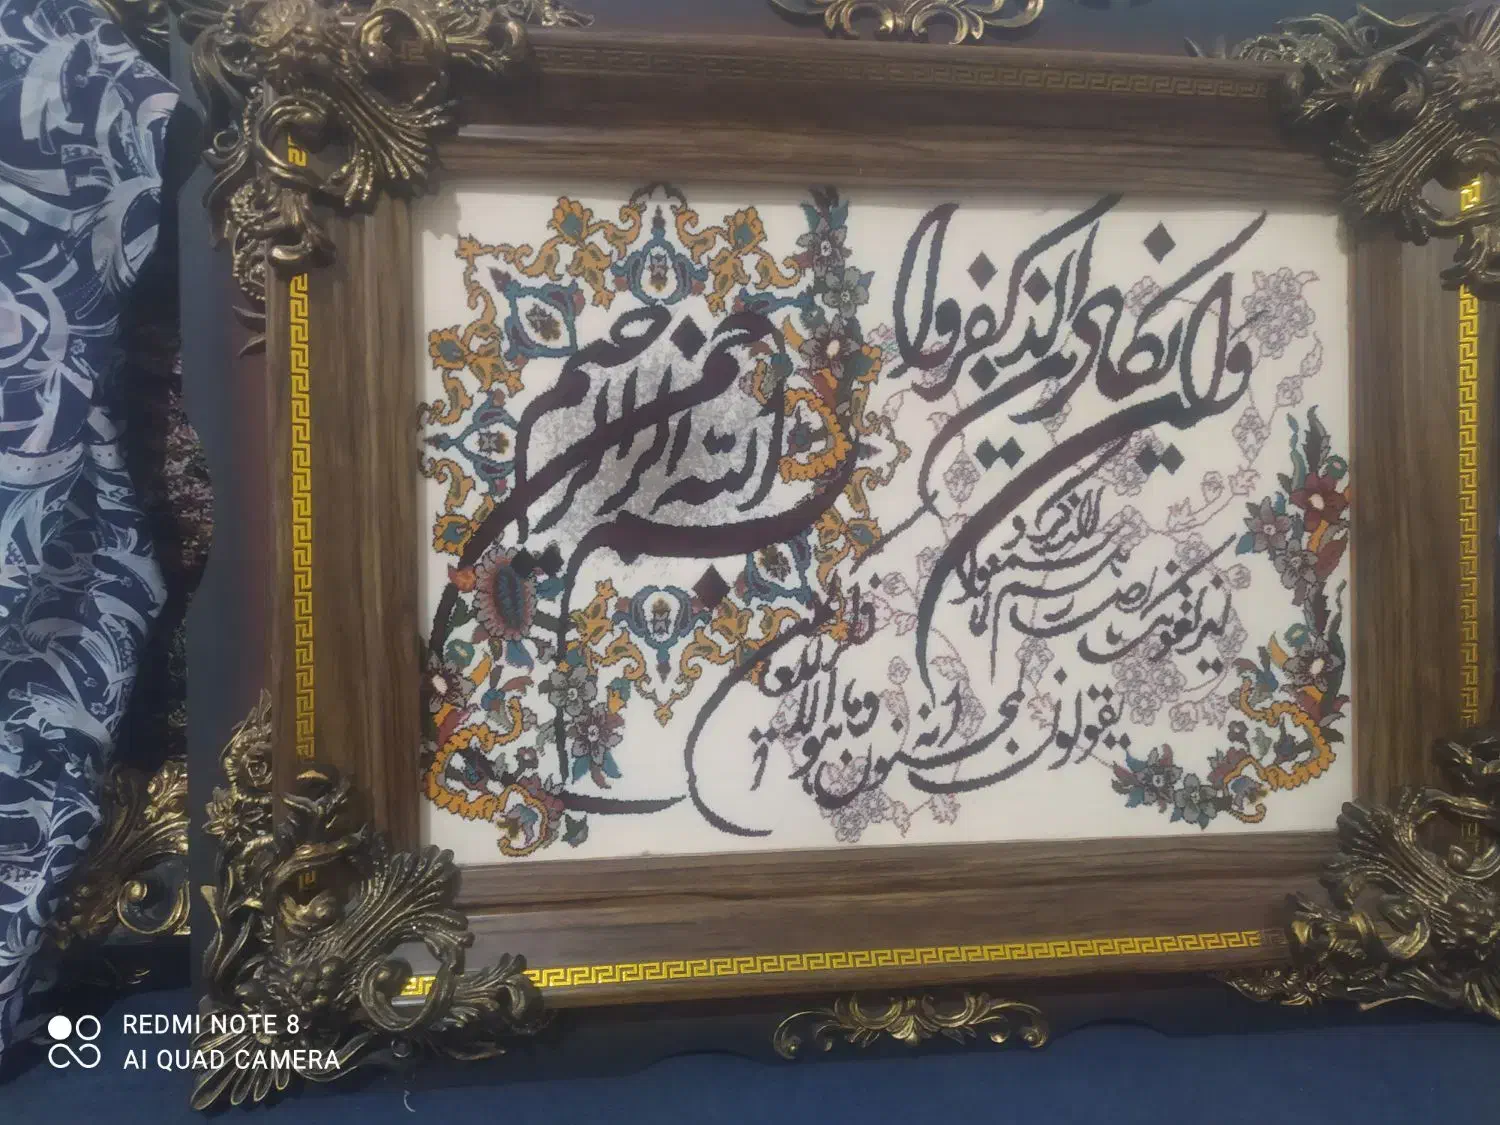 بسم الله الرحمن الرحیم
وان یکاد الذین کفروا
لیزلقونک بابصارهم لما سمعوا الذکر و
یقولون انه لمجنون
وما هو الا ذکر للعالمین
REDMI NOTE 8
AI QUAD CAMERA